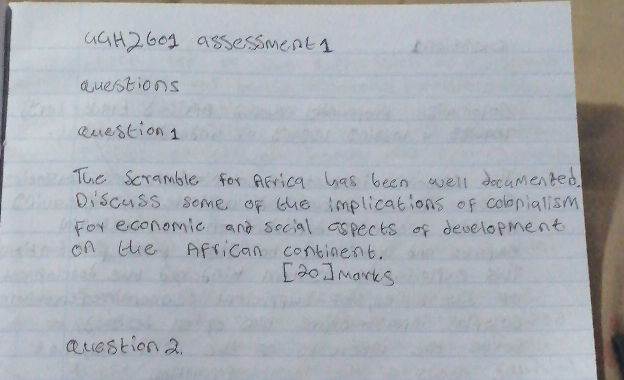 GGH2601 assessment 1
questions
question 1
The Scramble for Africa has been well documented.
Discuss some of the implications of colonialism
for economic and social aspects of development
on the African continent.
[20] Marks
question 2.